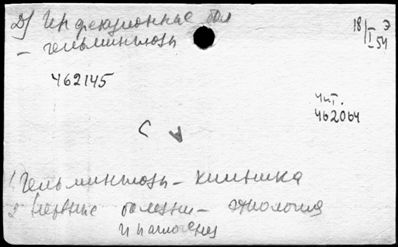 Д) Инфекционные бол
18/I 54 Э
– гельминтозы
462145
Чит.
462064
С А
1. Гельминтозы – клиника
2. Нервные болезни – этиология
и патогенез